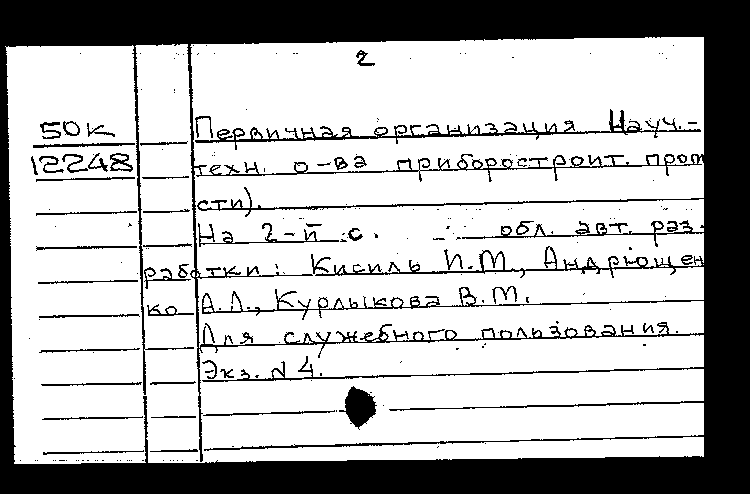 2
50К Первичная организация Науч.-
12248 техн. о-ва приборостроит. пром
сти).
На 2-й с. обл. авт. раз-
работки: Кисиль И.М., Андрющен
ко А.Л., Курлыкова В.М.
Для служебного пользования.
Экз. № 4.